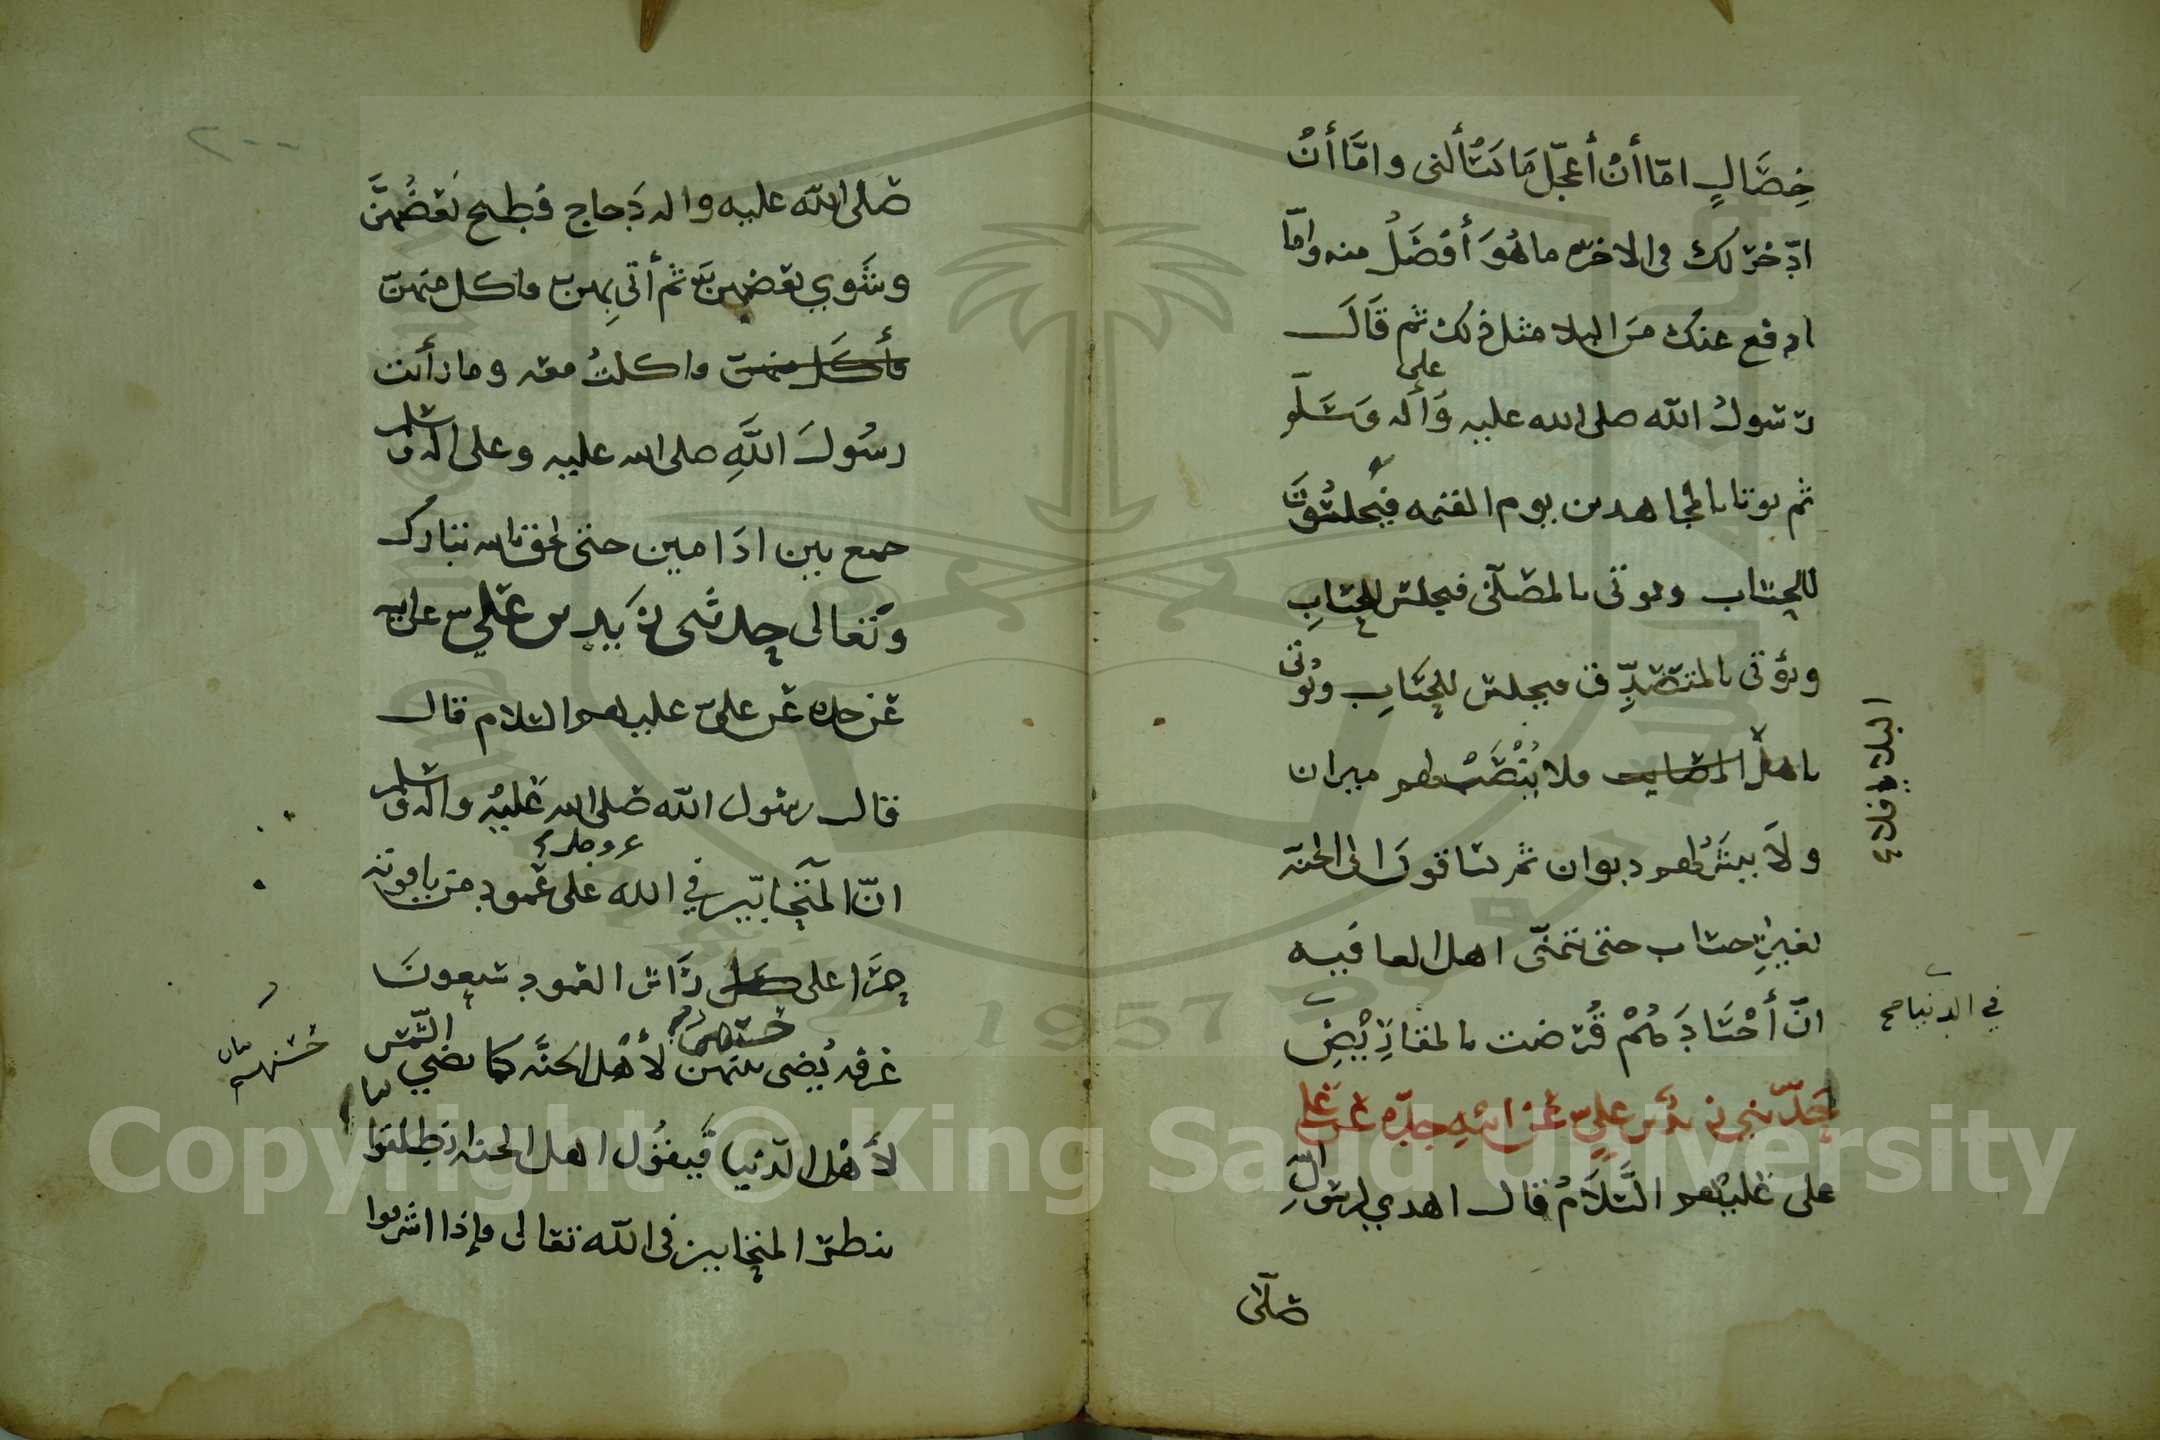 خِصَالٍ امّا أنْ أعجّل مَا تسْألنى وامّا أنْ
ادّخرَ لك فى الاخره ما هُوَ أفضَلُ منه وامّا
ادفع عنك مَن البلا مثل ذلك ثم قَالَ
رسُولُ الله صلى الله عليه وَعلى أله وَسَلّم
ثم يوتا بالمجاهدين يوم القيمه فيُجلسُونَ
للحِسَاب ويوتى بالمصَلّى فيجلس للحِسَابِ
ويؤتى بالمتصَدِّق فيجلس للحِسَابِ ويُوتى
باهل المصايب فلا يُنْصَبُ لهم ميزان
البلاء
ولاَ ينشَرُ لهم ديوان ثم يسَاقونَ الى الجنه
بغيرِ حسَاب حتى تتمنّى اهل العافيه
انّ أجْسَادَهُمْ قُرّضت بالمقَارِيْضِ
في الدنيا صح
حَدّثني زيدُ بن عليٍّ عَنْ ابيْهِ جدِّه عَن علي
على عَليهم السَّلاَمُ قال اهدي لِرسُولِ الله
صَلّى
صَلى الله عليه واله دَجاج فطبخ بَعضُهنَّ
وشَوي بعضهن ثم أتى بهن فاكل منهنّ
فأكَل منهنّ واكلتُ معه وما رأيت
رسُولَ اللَّهِ صلى الله عليه وعلى اله وسلم
جمع بين ادَامين حتى لحق بالله تبارك
وتعالى حدثنى زيد بن عَلي عن ابيه
عَن جده عَن علىّ عليهم السّلام قال
قال رسول الله صَلى الله عَليْهِ واله وسلم
انّ المتحابّين في الله عز وجل على عَمود من ياقوته
حمرَا على رَاس العمود سَبعونَ
غرفه يُضى حسنهن لأهْل الجنَّه كما يضي الشّمس
حسنهن بيان
لأَهْل الدّنيا فيقوُل اهل الجنه انطلقوا بنا
ننظر المتحابين فى الله تعالى فإذا اشرفوا